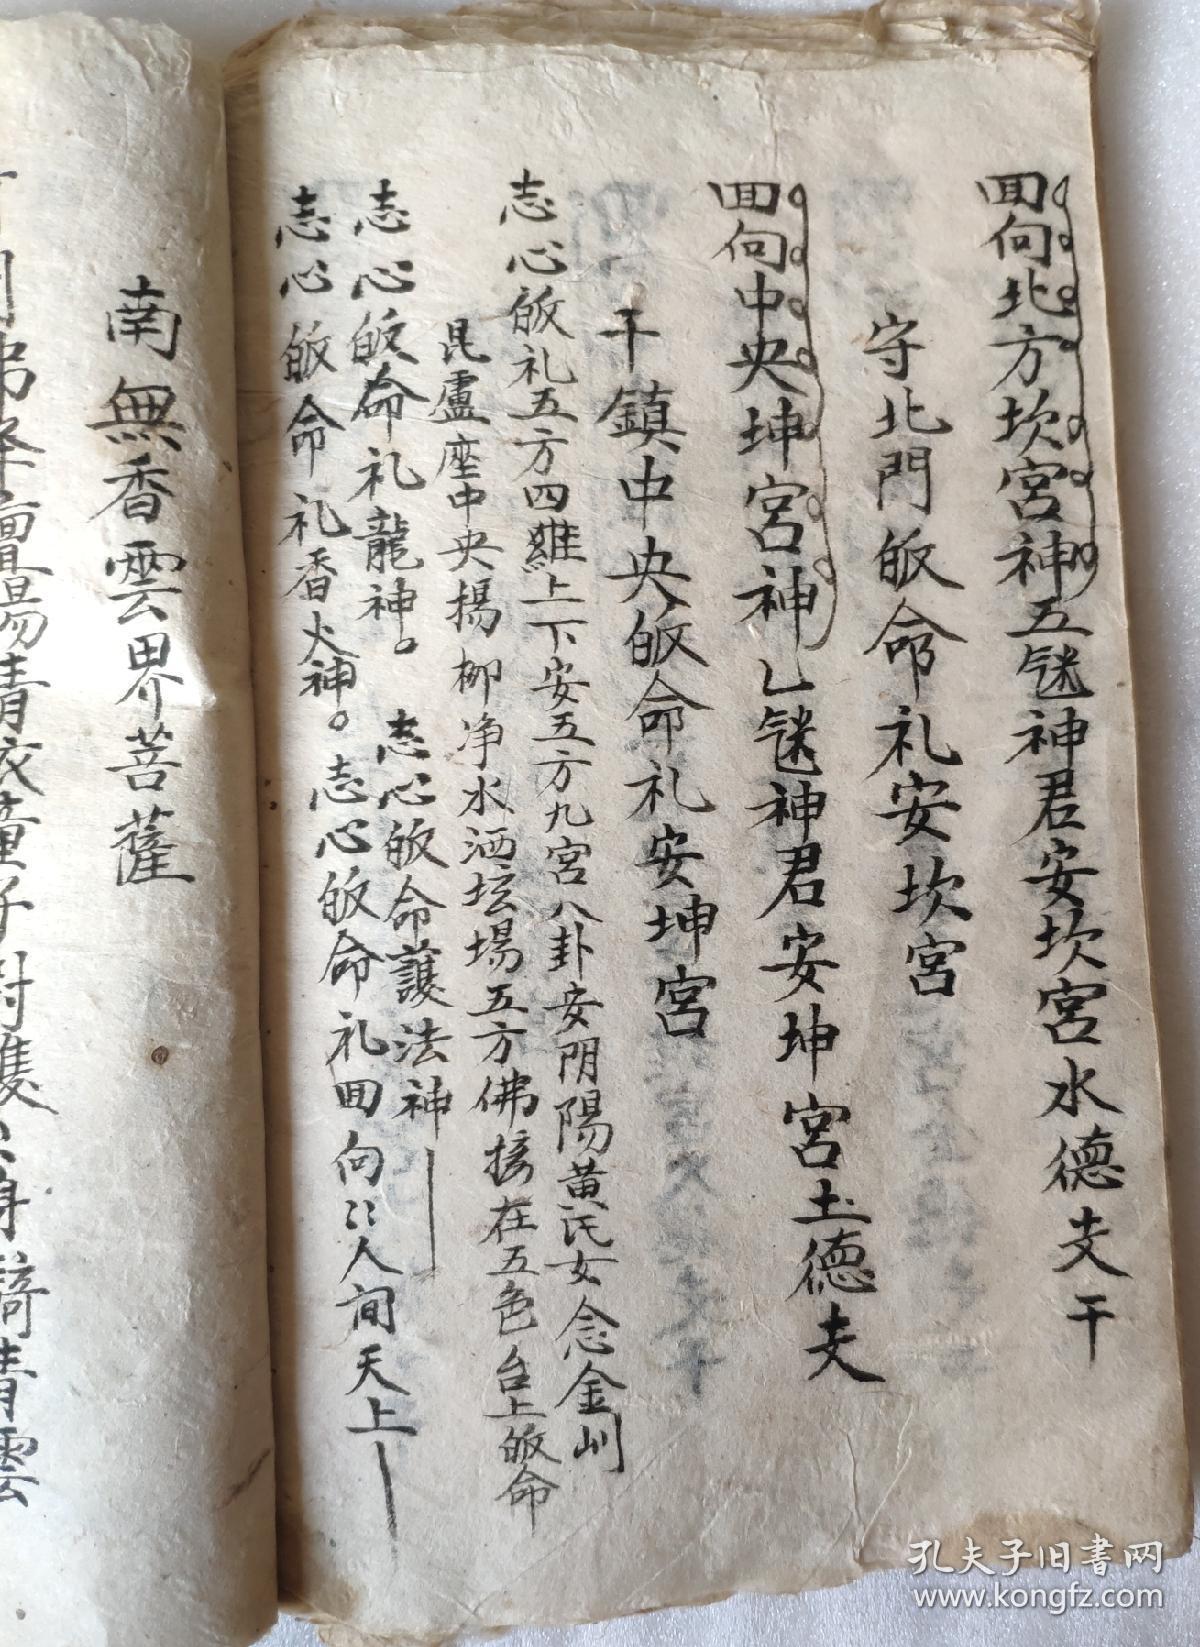 回向北方坎宮神五䊵神君安坎宮水德夫干
守北門皈命礼安坎宮
回向中央坤宮神乚䊵神君安坤宮土德夫
干鎮中央皈命礼安坤宮
志心皈礼五方四維上下安五方九宮八卦安阴陽黄氏女念金川
昆盧座中央楊柳净水洒坛場五方佛接在五色台上皈命
志心皈命礼龍神。志心皈命護法神
志心皈命礼香火神。志心皈命礼回向〻人间天上
南無香雲界菩薩
青衣童子对雙身騎青雲
孔夫子旧書网
www.kongfz.com